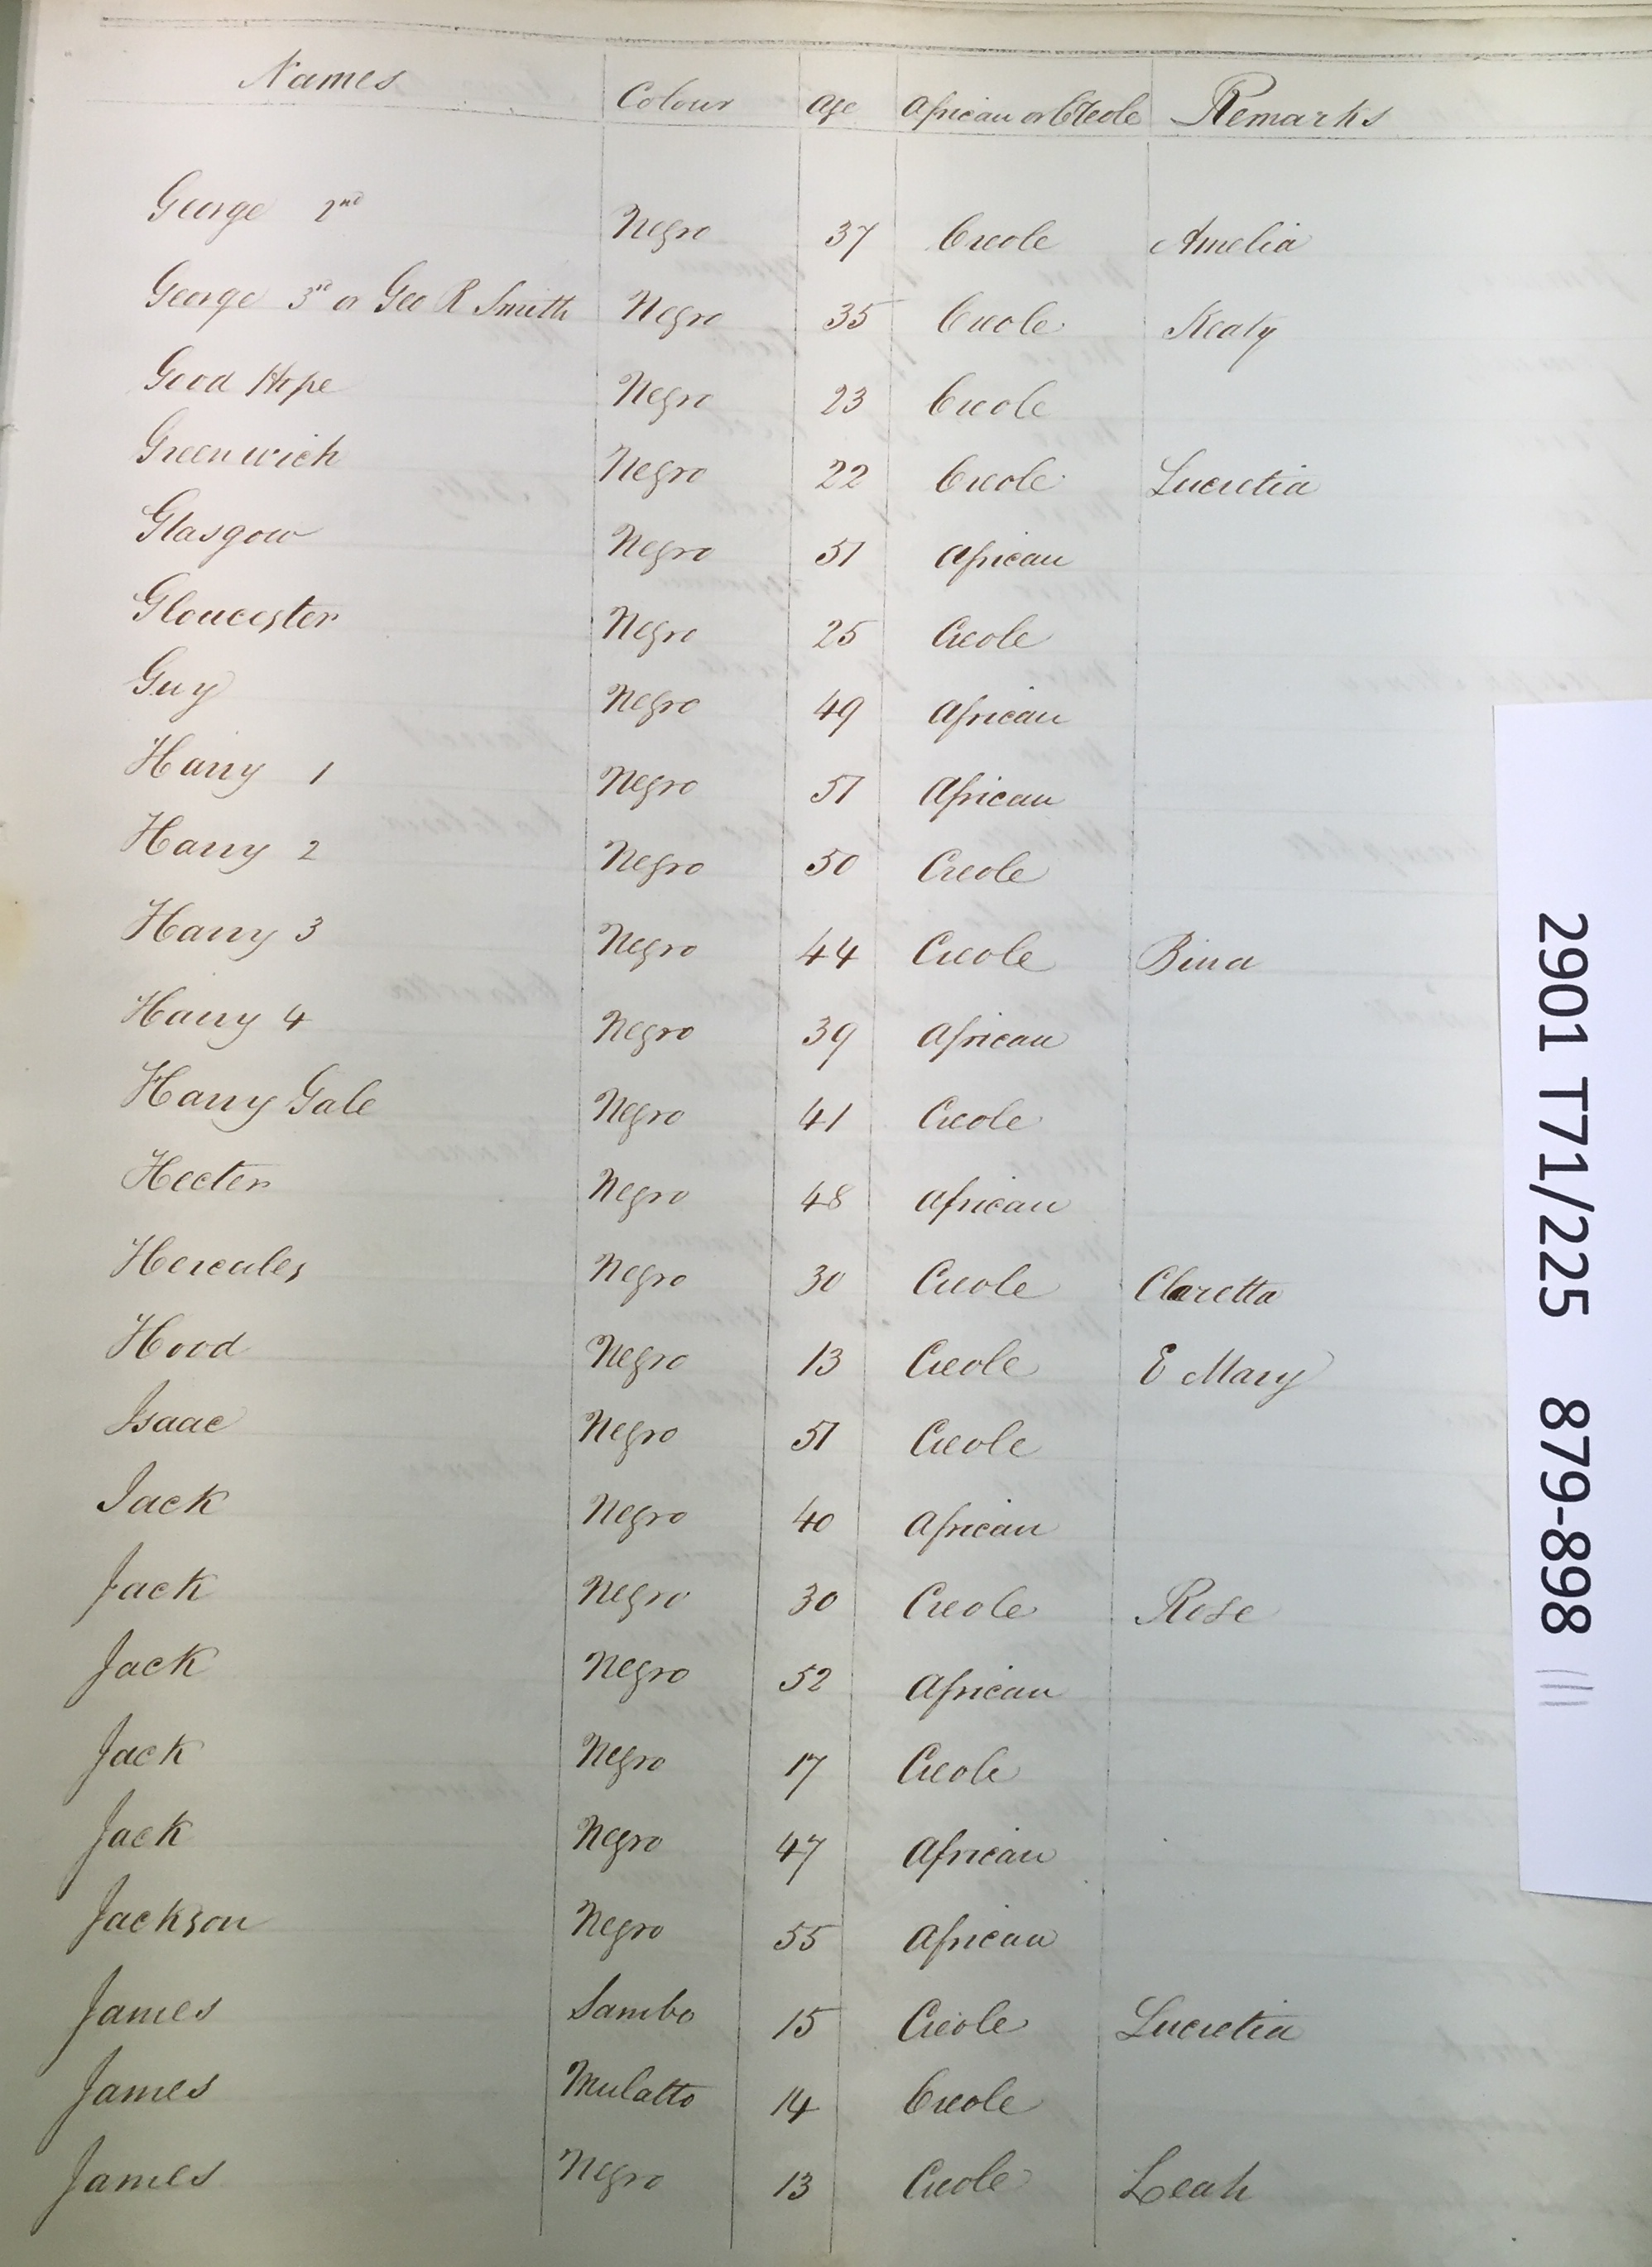 Names Colour Age African or Creole Remarks
George 2nd Negro 37 Creole Amelia
George 3rd or Geo R Smith Negro 35 Creole Keaty
Good Hope Negro 23 Creole
Greenwich Negro 22 Creole Lucretia
Glasgow Negro 51 African
Gloucester Negro 25 Creole
Guy Negro 49 African
Harry 1 Negro 51 African
Harry 2 Negro 50 Creole
Harry 3 Negro 44 Creole Bina
Harry 4 Negro 39 African
Harry Gale Negro 41 Creole
Hecter Negro 48 African
Hercules Negro 30 Creole Claretta
Hood Negro 13 Creole E Mary
Isaac Negro 51 Creole
Jack Negro 40 African
Jack Negro 30 Creole Rose
Jack Negro 52 African
Jack Negro 17 Creole
Jack Negro 47 African
Jackson Negro 55 African
James Sambo 15 Creole Lucretia
James Mulatto 14 Creole
James Negro 13 Creole Leah
2901 T71/225 879-898